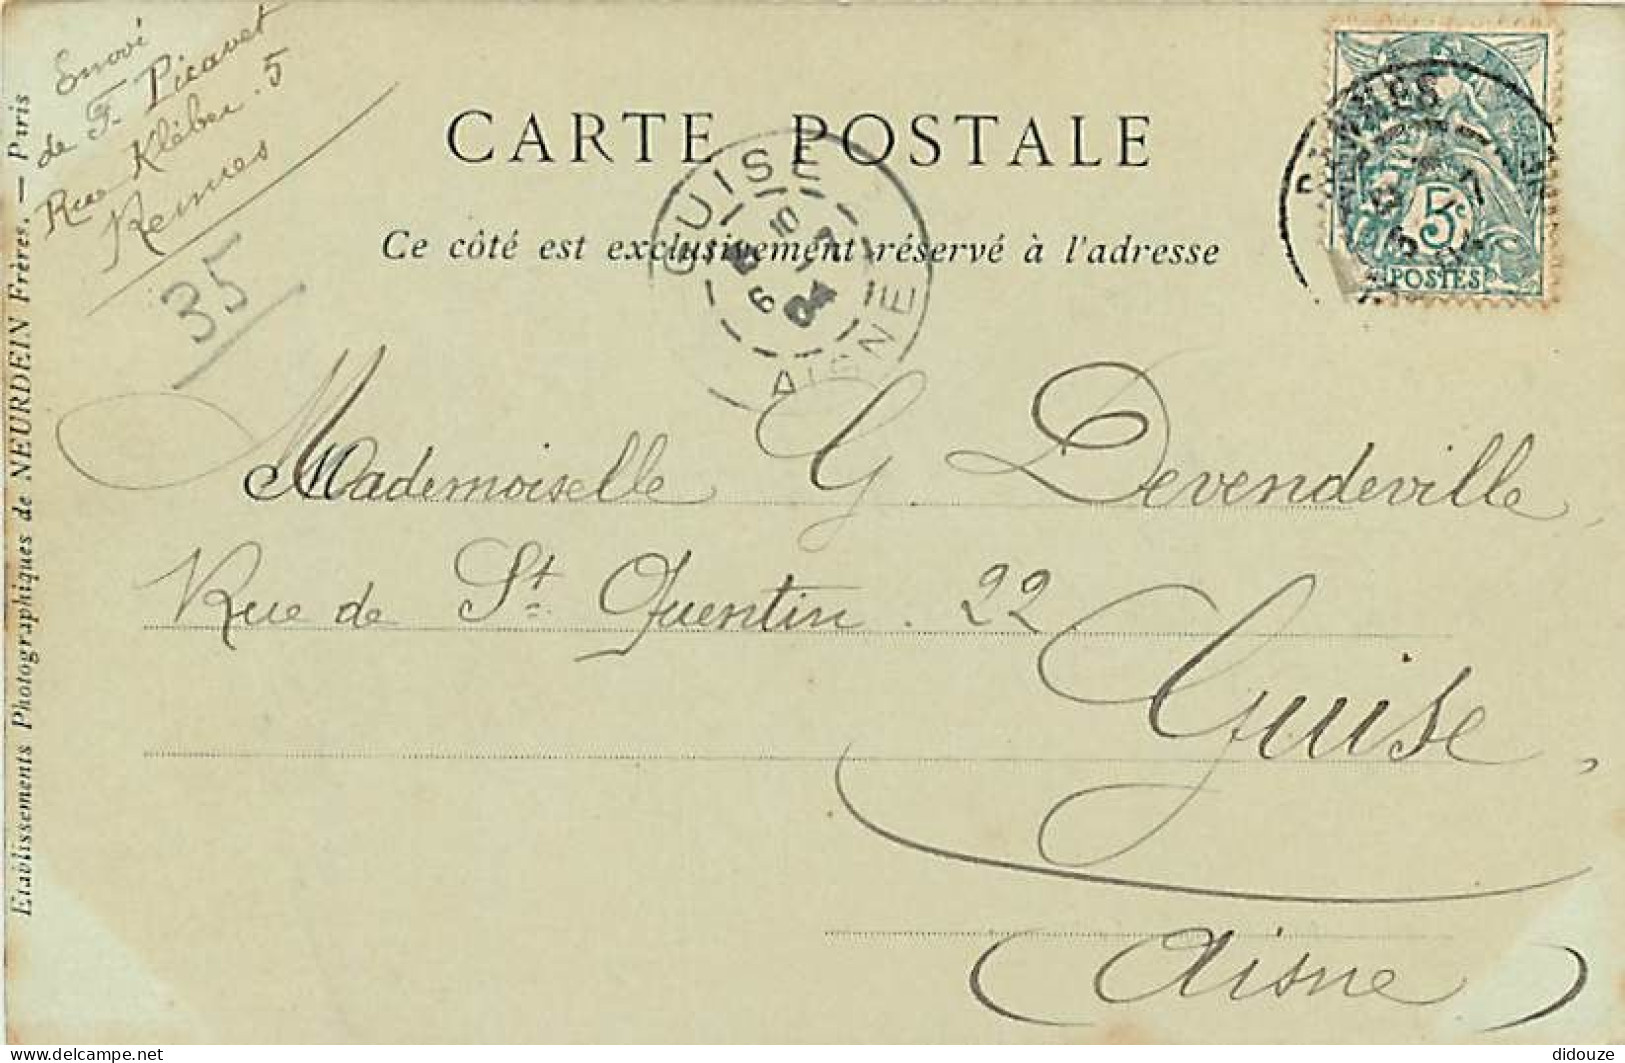 Envoi
de F. Picavet
Rue Kléber. 5
Rennes
35
CARTE POSTALE
Ce côté est exclusivement réservé à l'adresse
GUISE
10
6 04
AISNE
RENNES
5c
POSTES
Mademoiselle G. Devendeville,
Rue de St Quentin. 22
Guise,
(Aisne)
Etablissements Photographiques de NEURDEIN Frères. — Paris
www.delcampe.net
didouze